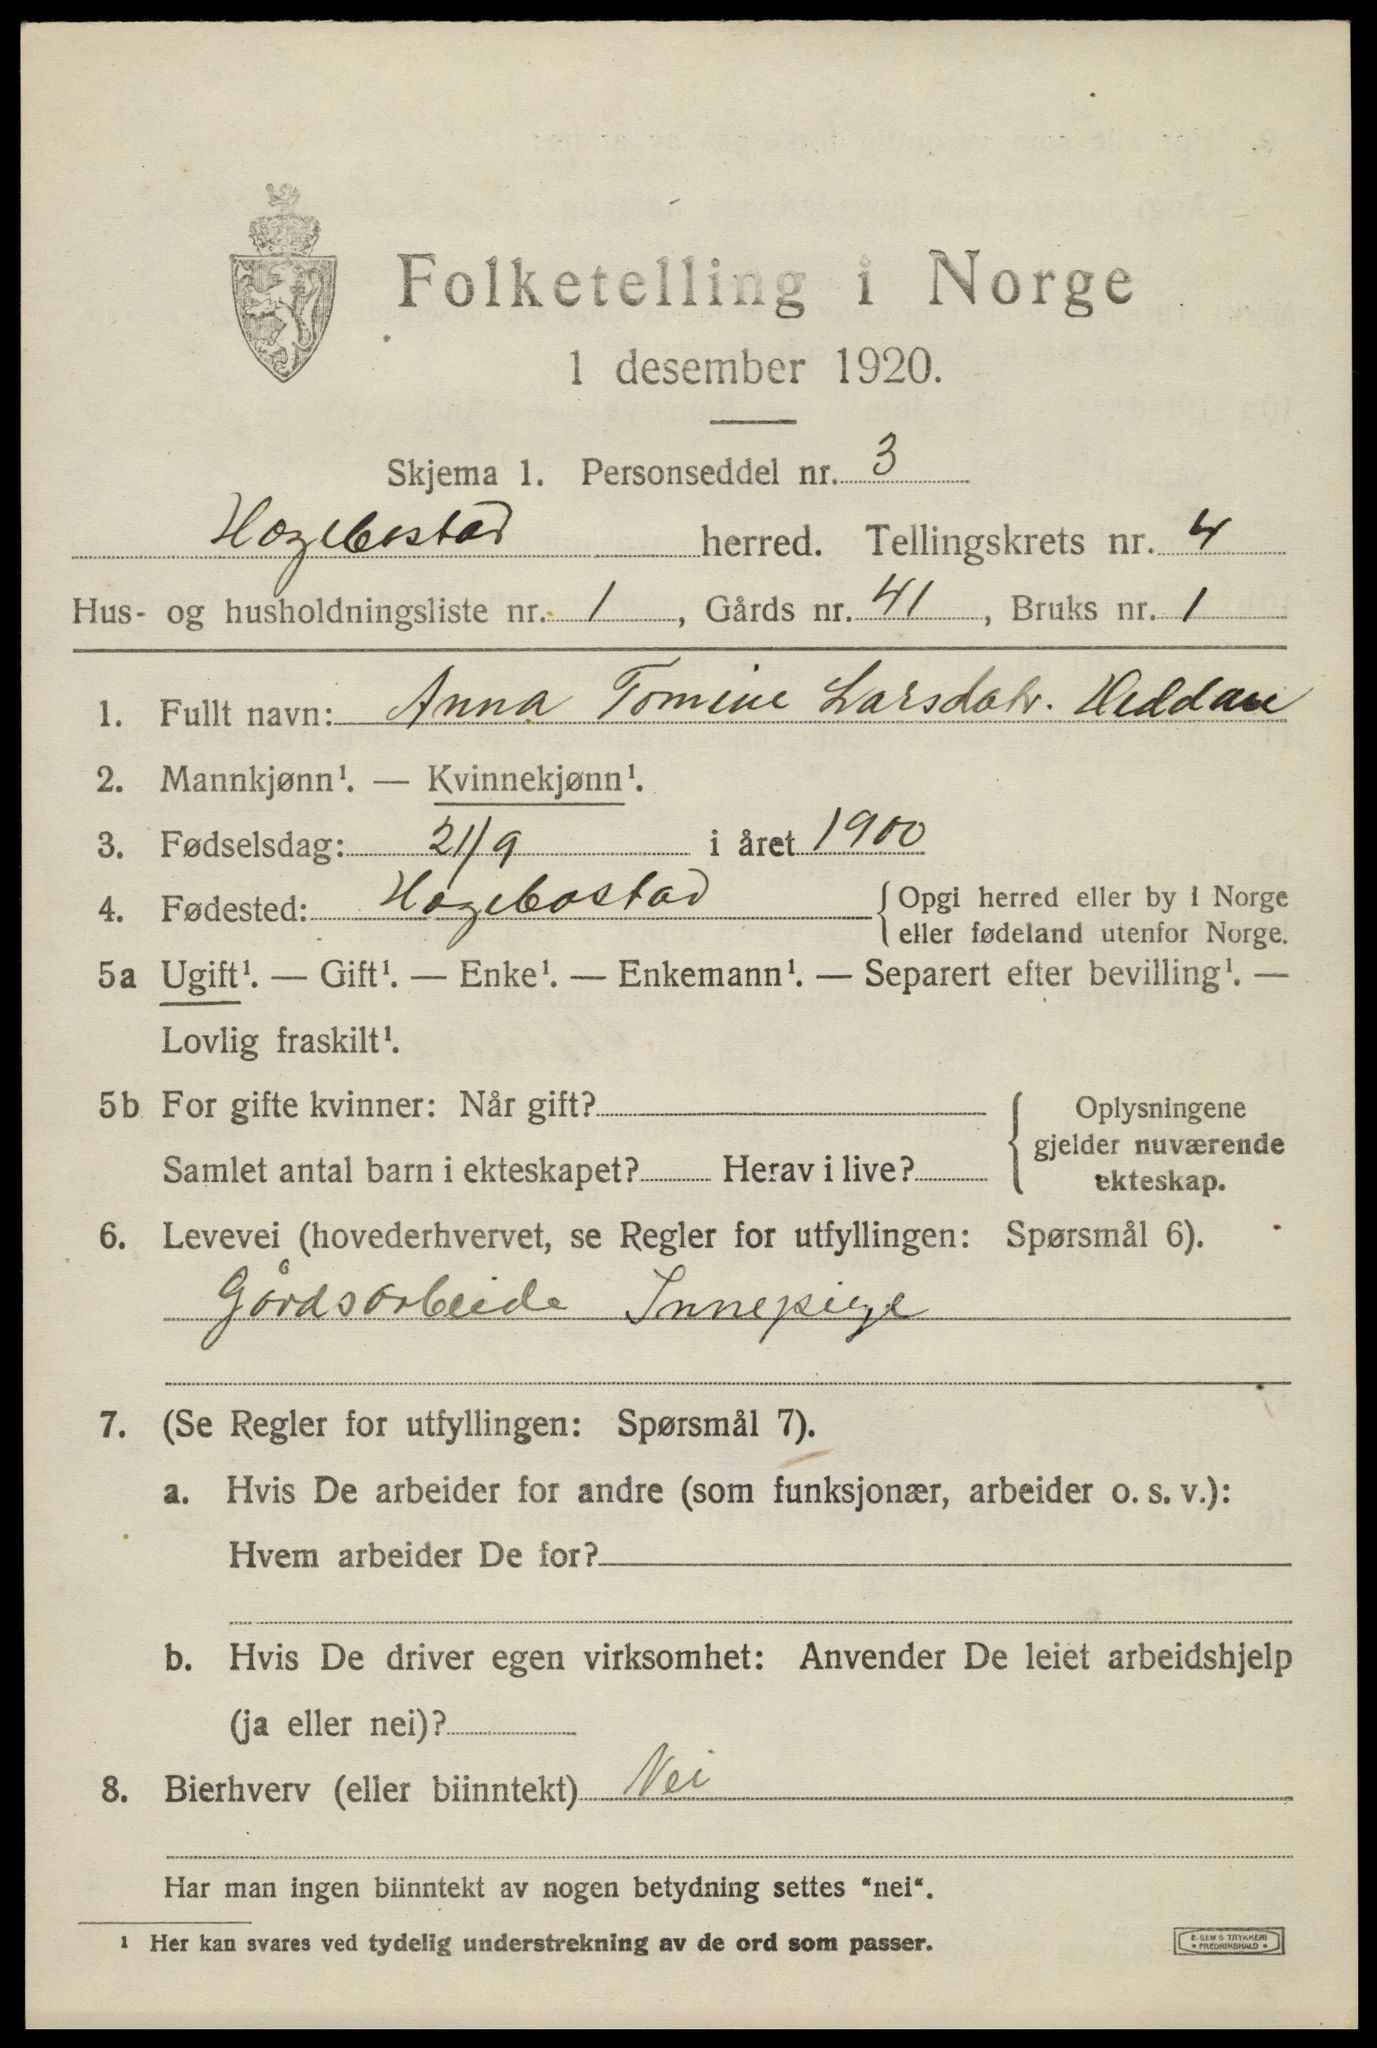 Folketelling i Norge
1 desember 1920.
Skjema 1. Personseddel nr. 3
Hægebostad herred. Tellingskrets nr. 4
Hus- og husholdningsliste nr. 1, Gårds nr. 41, Bruks nr. 1
1. Fullt navn: Anna Tomine Larsdatr. Heddan
2. Mannkjønn¹. — Kvinnekjønn¹.
3. Fødselsdag: 21/9 i året 1900
4. Fødested: Hægebostad { Opgi herred eller by i Norge
eller fødeland utenfor Norge.
5a Ugift¹. — Gift¹. — Enke¹. — Enkemann¹. — Separert efter bevilling¹. —
Lovlig fraskilt¹.
5b For gifte kvinner: Når gift? { Oplysningene
gjelder nuværende
Samlet antal barn i ekteskapet? Herav i live? ekteskap.
6. Levevei (hovederhvervet, se Regler for utfyllingen: Spørsmål 6).
Gårdsarbeide Innepige
7. (Se Regler for utfyllingen: Spørsmål 7).
a. Hvis De arbeider for andre (som funksjonær, arbeider o. s. v.):
Hvem arbeider De for?
b. Hvis De driver egen virksomhet: Anvender De leiet arbeidshjelp
(ja eller nei)?
8. Bierhverv (eller biinntekt) Nei
Har man ingen biinntekt av nogen betydning settes "nei".
¹ Her kan svares ved tydelig understrekning av de ord som passer.
E. SEM'S TRYKKERI
* FREDRIKSHALD *